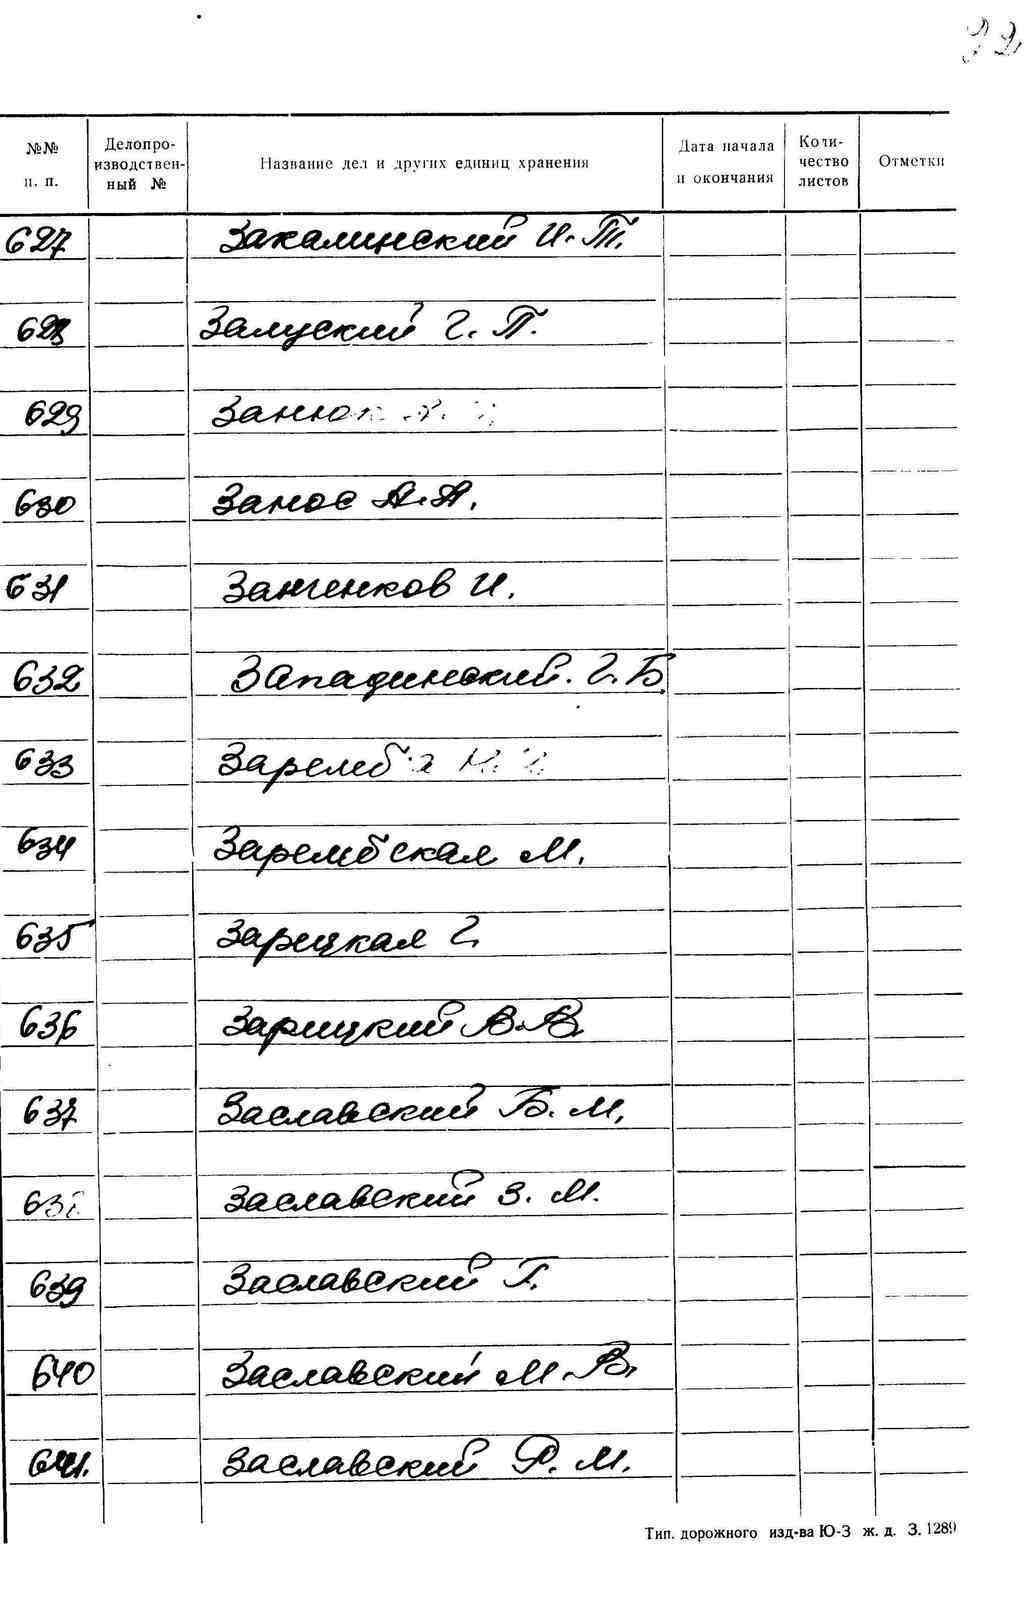 22
№№ п. п.
Делопро-
изводствен-
ный №
Название дел и других единиц хранения
Дата начала
и окончания
Коли-
чество
листов
Отметки
627 Закалинский И. Т.
628 Залуский Г. П.
629 Занюк
630 Занос А. А.
631 Занченков И.
632 Западинский. Г. Б.
633 Заремба
634 Зарембская М.
635 Зарецкая Г.
636 Зарицкий В. В.
637 Заславский Б. М.
638 Заславский З. М.
639 Заславский Г.
640 Заславский М. В.
641. Заславский Р. М.
Тип. дорожного изд-ва Ю-З ж. д. З. 1289